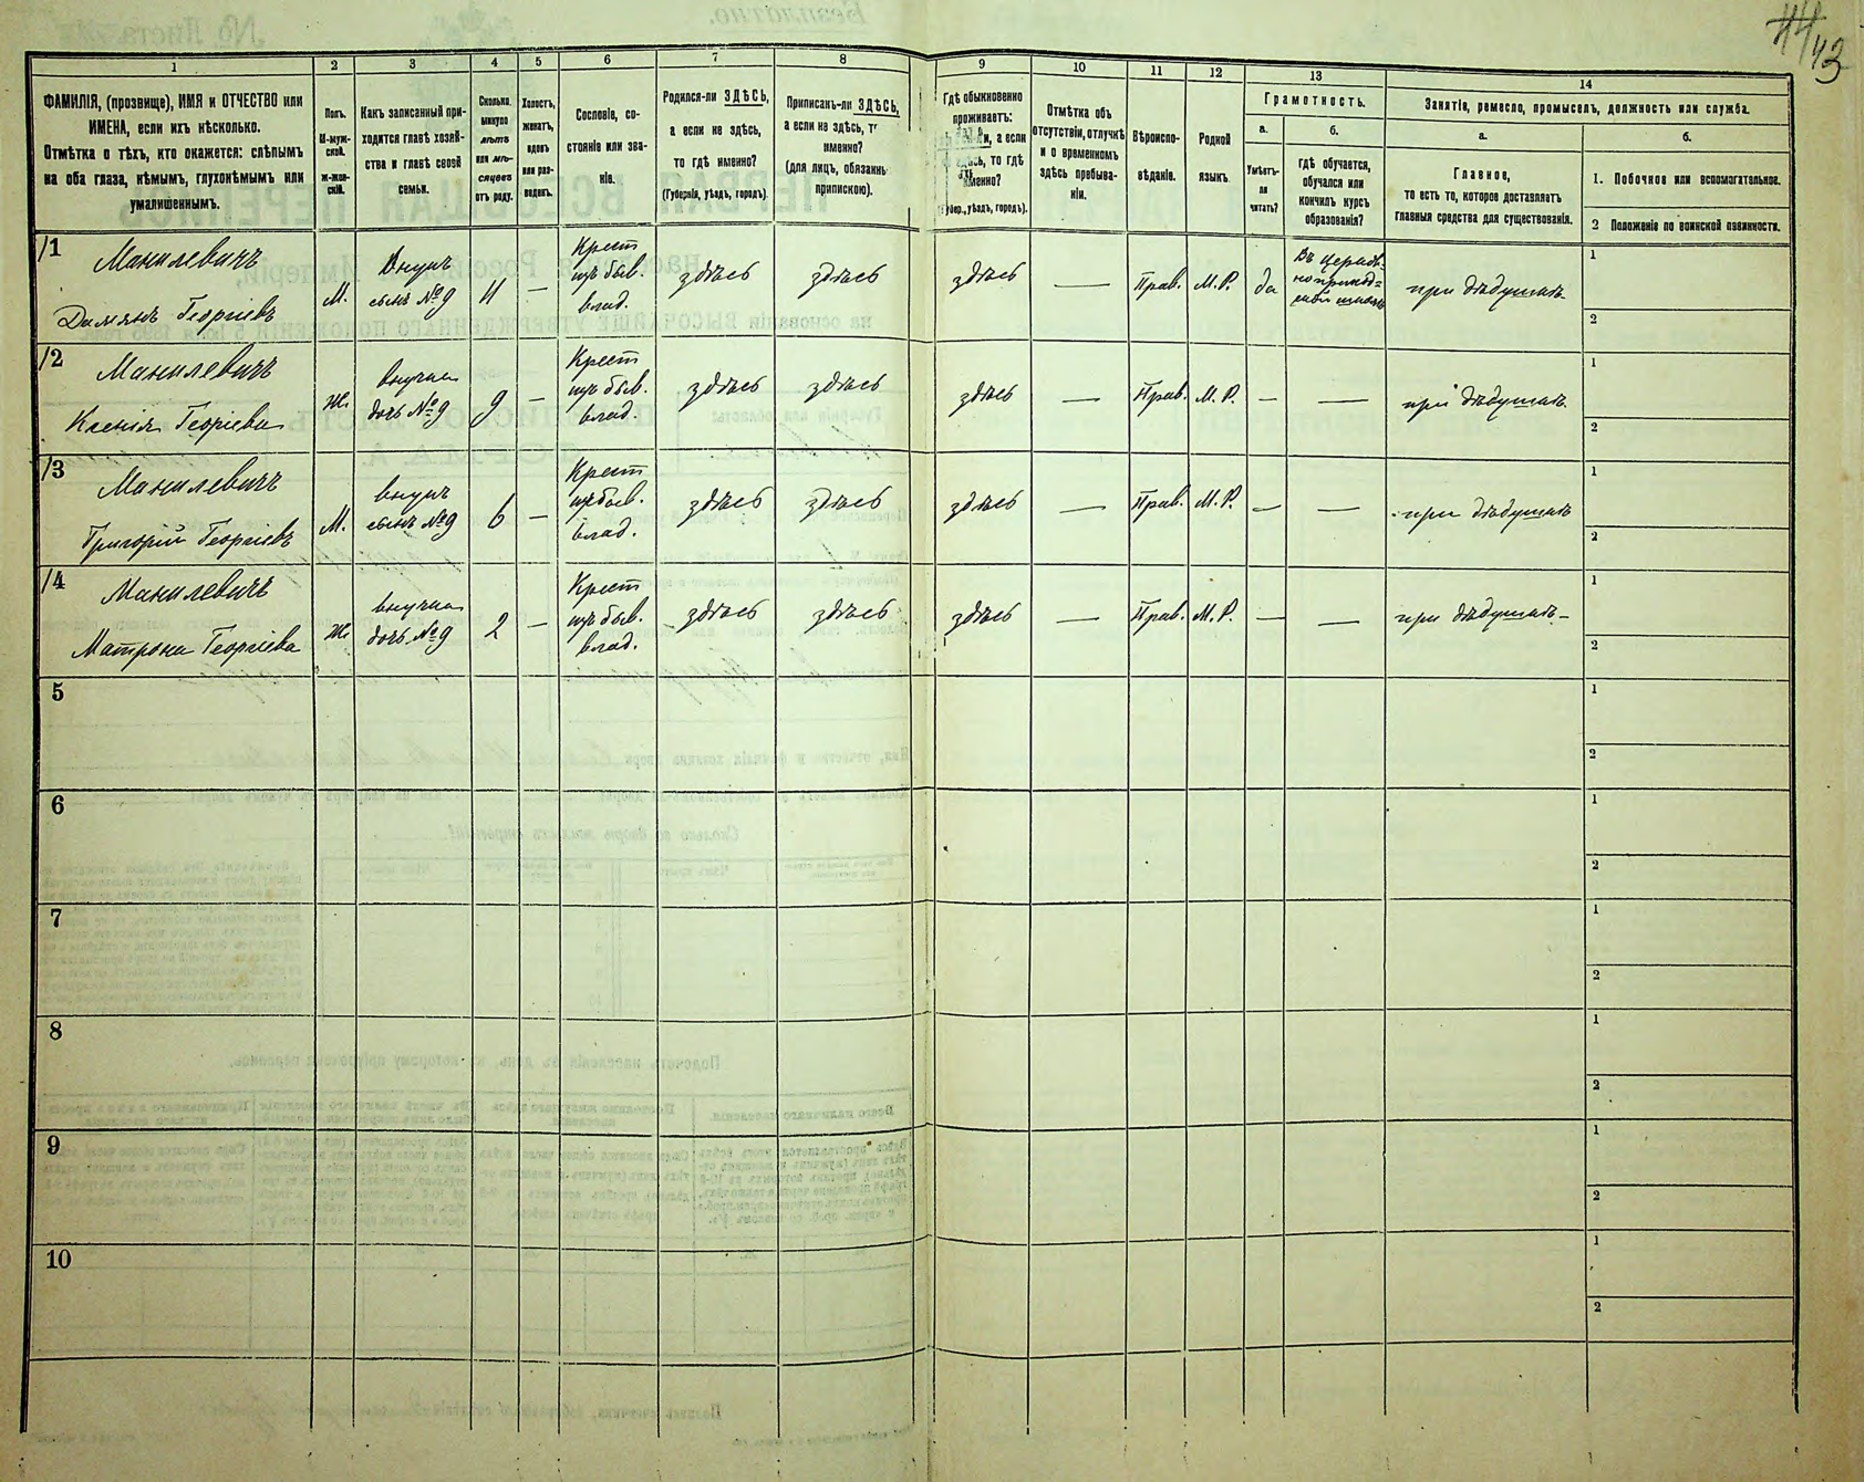 44 43
1
2
3
4
5
6
7
8
9
10
11
12
13
14
ФАМИЛІЯ, (прозвище), ИМЯ и ОТЧЕСТВО или
ИМЕНА, если ихъ нѣсколько.
Отмѣтка о тѣхъ, кто окажется: слѣпымъ
на оба глаза, нѣмымъ, глухонѣмымъ или
умалишеннымъ.
Полъ.
М-муж-
ской.
Ж-жен-
скій.
Какъ записанный при-
ходится главѣ хозяй-
ства и главѣ своей
семьи.
Сколько
минуло
лѣтъ
или мѣ-
сяцевъ
отъ роду.
Холостъ,
женатъ,
вдовъ
или раз-
веденъ.
Сословіе, со-
стояніе или зва-
ніе.
Родился-ли ЗДѢСЬ,
а если не здѣсь,
то гдѣ именно?
(Губернія, уѣздъ, городъ).
Приписанъ-ли ЗДѢСЬ,
а если не здѣсь, т
именно?
(для лицъ, обязанны
припискою).
Гдѣ обыкновенно
проживаетъ:
и, а если
то гдѣ
именно?
уѣздъ, городъ).
Отмѣтка объ
отсутствіи, отлучкѣ
и о временномъ
здѣсь пребыва-
ніи.
Вѣроиспо-
вѣданіе.
Родной
языкъ.
Грамотность.
а.
б.
Умѣетъ-
ли
читать?
гдѣ обучается,
обучался или
кончилъ курсъ
образованія?
Занятіе, ремесло, промыселъ, должность или служба.
а.
б.
Главное,
то есть то, которое доставляетъ
главныя средства для существованія.
1. Побочное или вспомогательное.
2 Положеніе по воинской повинности.
/1 Манилевичъ
Даміянъ Георгіевъ
М.
Внукъ
сынъ №9
11
—
Крест
изъ быв.
влад.
здѣсь
здѣсь
здѣсь
—
Прав.
М.Р.
да
Въ церков-
но приход-
ской школѣ
при дѣдушкѣ
1
2
/2 Манилевичъ
Ксенія Георгіева
Ж.
внучка
дочь №9
9
—
Крест
изъ быв.
влад.
здѣсь
здѣсь
здѣсь
—
Прав.
М.Р.
—
—
при дѣдушкѣ
1
2
/3 Манилевичъ
Григорій Георгіевъ
М.
внукъ
сынъ №9
6
—
Крест
изъ быв.
влад.
здѣсь
здѣсь
здѣсь
—
Прав.
М.Р.
—
—
при дѣдушкѣ
1
2
/4 Манилевичъ
Матрона Георгіева
Ж.
внучка
дочь №9
2
—
Крест
изъ быв.
влад.
здѣсь
здѣсь
здѣсь
—
Прав.
М.Р.
—
—
при дѣдушкѣ
1
2
5
1
2
6
1
2
7
1
2
8
1
2
9
1
2
10
1
2